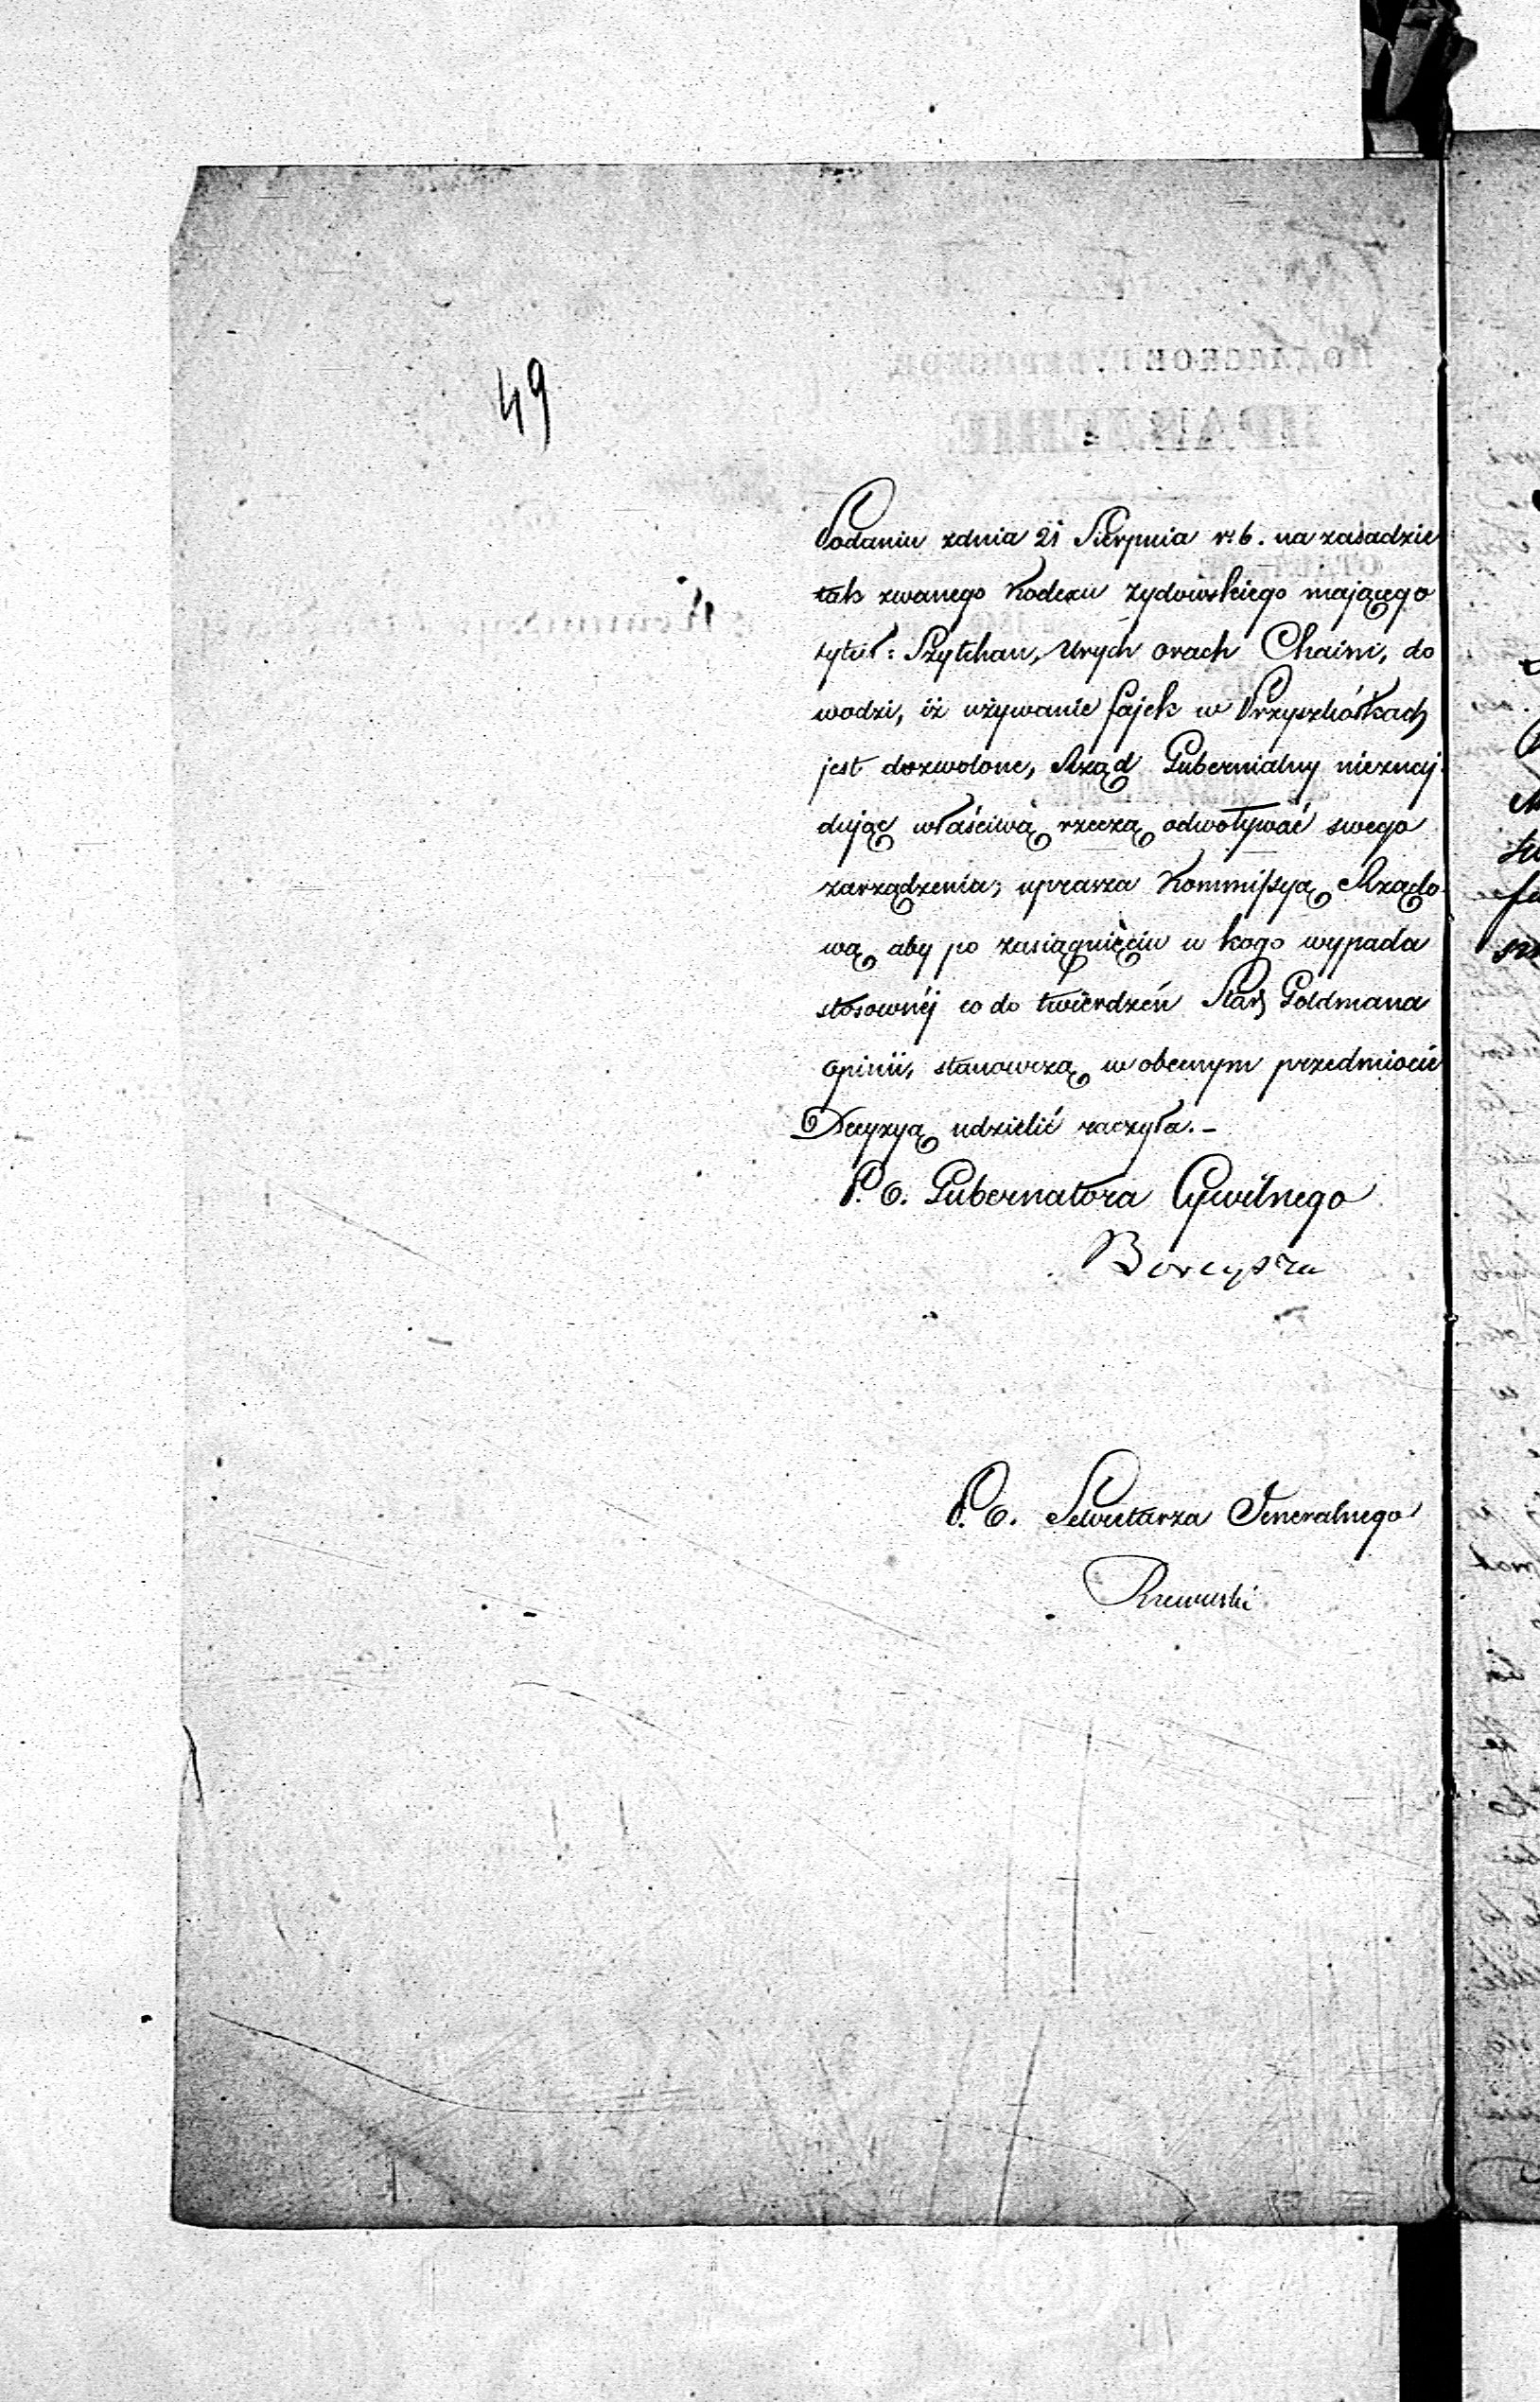 49
Podaniu zdnia 21 Sierpnia r. b. na zasadzie
tak zwanego Kodexu Żydowskiego mającego
tytuł: Szylchan, Urych orach Chaim, do
wodzi, iż używanie fajek w Przyszkółkach
jest dozwolone, Rząd Gubernialny nieznaj-
dując właściwą rzeczą odwoływać swego
zarządzenia, uprasza Kommissyą Rządo-
wą, aby po zasiągnięciu u kogo wypada
stosownéj co do twierdzeń Star. Goldmana
opinii, stanowczą w obecnym przedmiocie
Decyzyą udzielić raczyła.-
P. O. Gubernatora Cywilnego
P. O. Sekretarza Jeneralnego